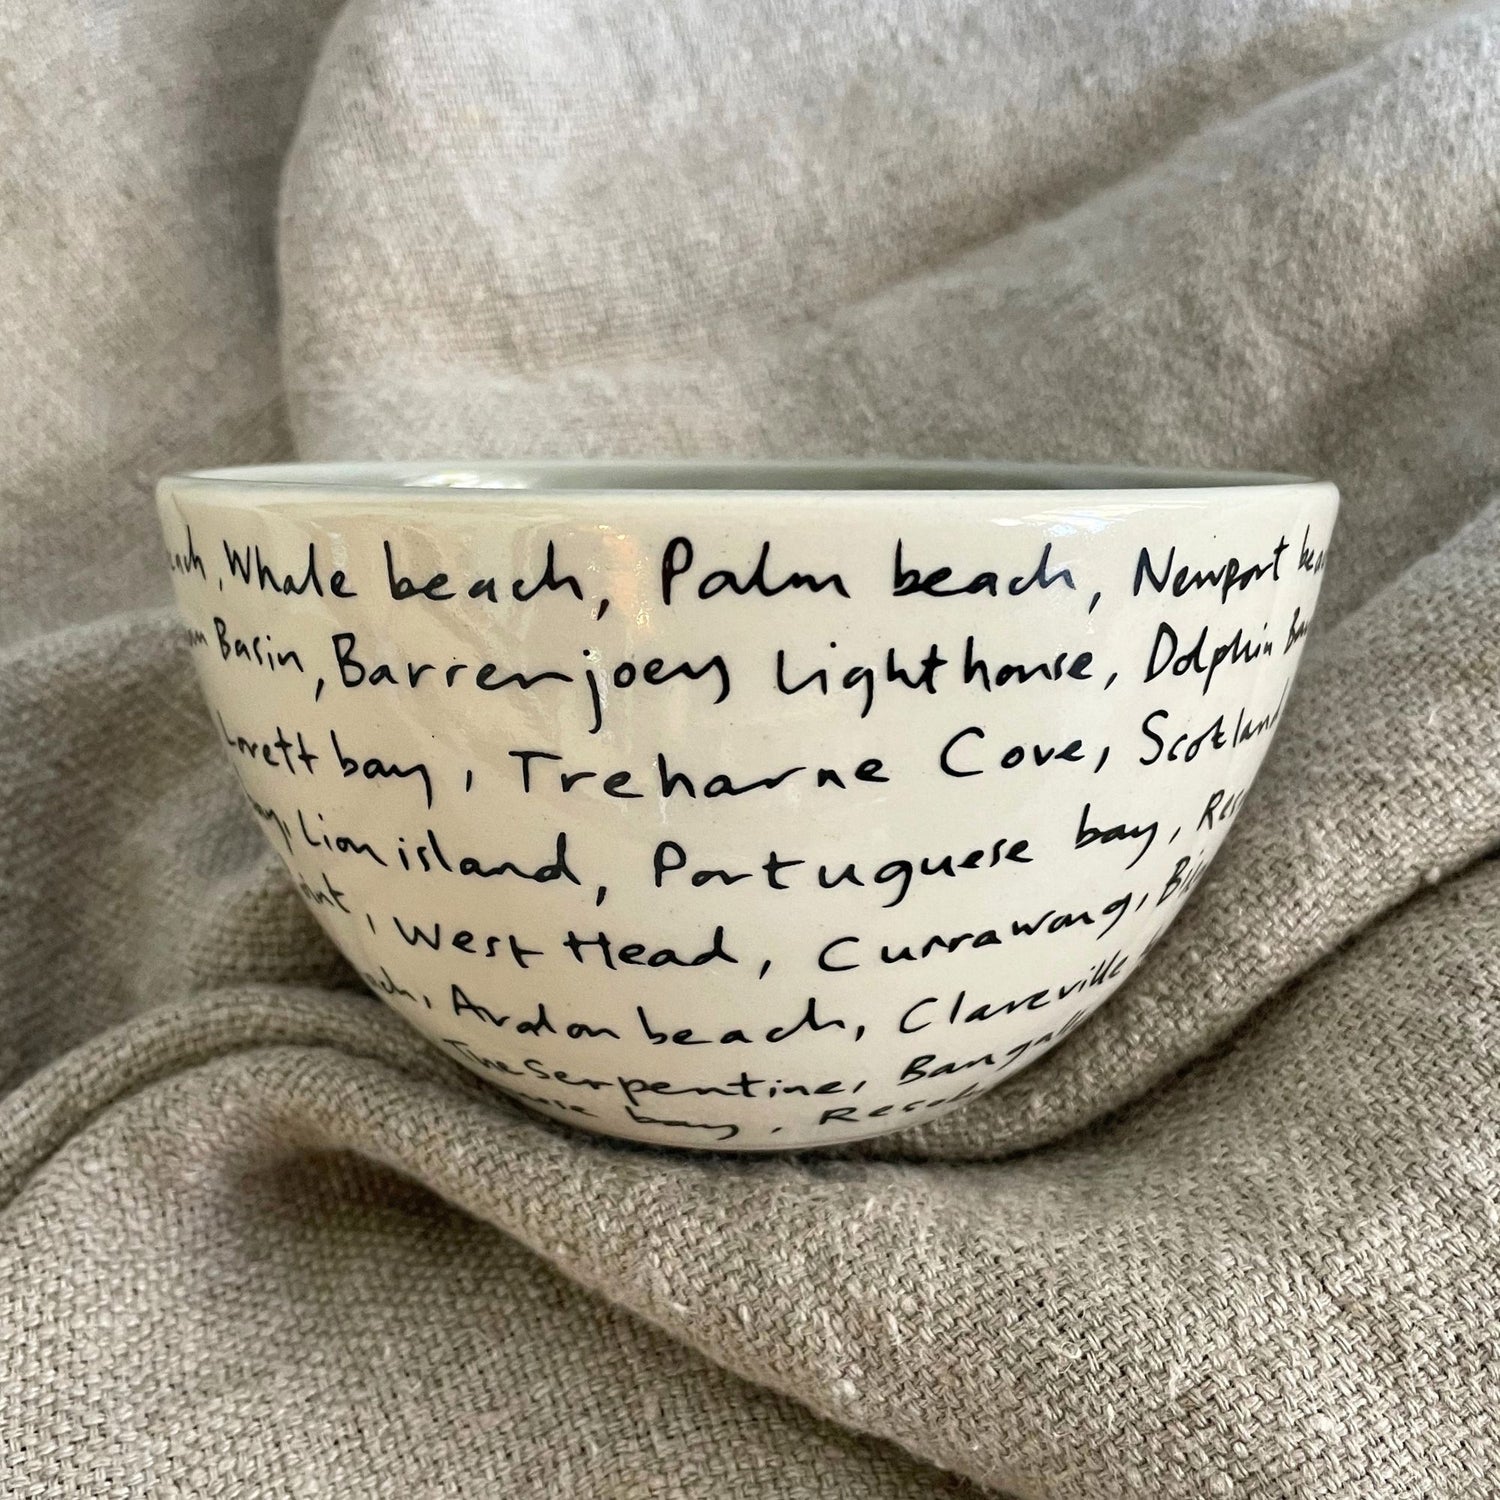 , Whale beach, Palm beach, Newport
Basin, Barrenjoey Lighthouse, Dolphin
Lovett bay, Treharne Cove, Scotland
Lion island, Portuguese bay,
, West Head, Currawong,
Avalon beach, Clareville
The Serpentine,
bay,